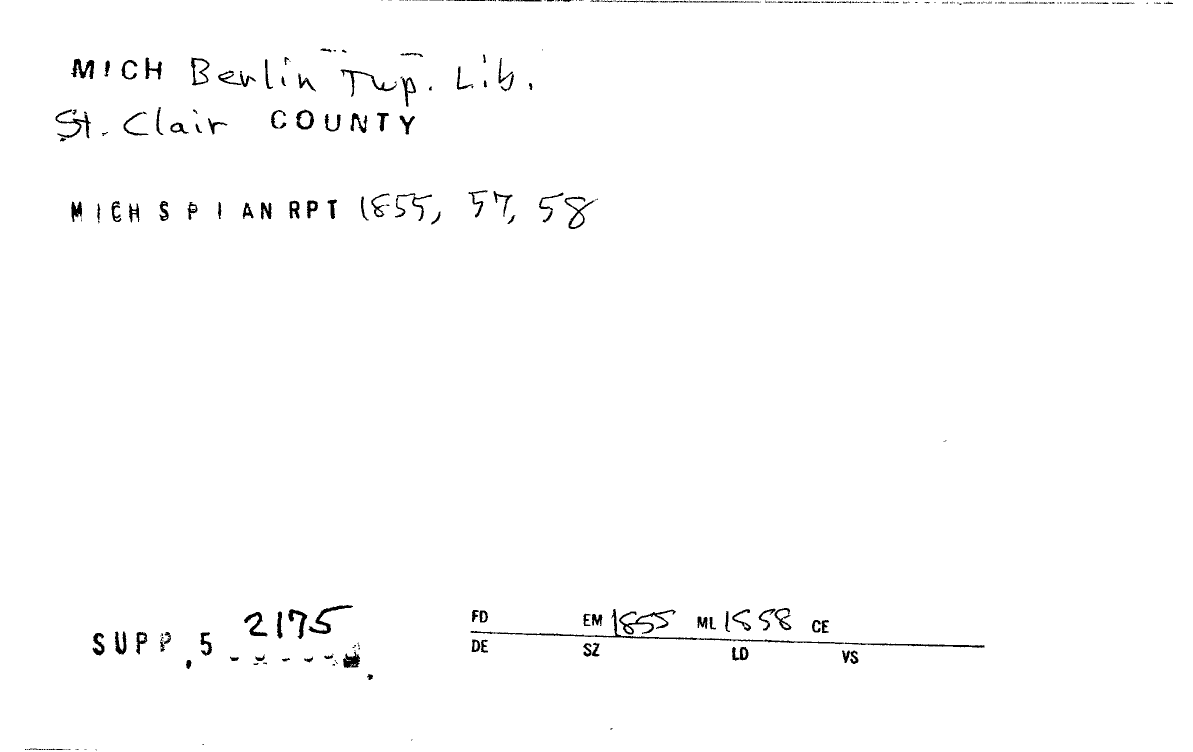 MICH Berlin Twp. Lib.
St. Clair COUNTY
MICH S P I AN RPT 1855, 57, 58
SUPP. 5 2175
FD EM 1855 ML 1858 CE
DE SZ LD VS